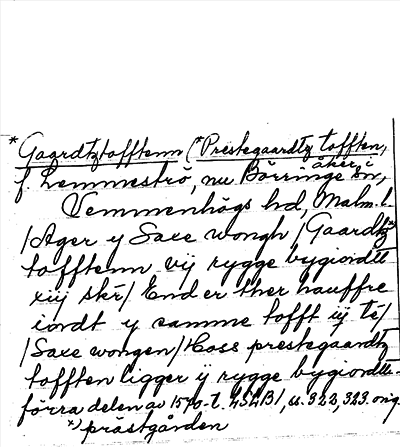 *Gaardtztofftenn (*Prestegaardtz tofften,
åker, i
f. Lemmeströ, nu Börringe sn,
Vemmenhögs hd, Malm. l.
/Ager y Saxe wongh/Gaardtz
tofftenn vij rygge bygiordtt
xiij skr/ End er ther hauffre
iordt y samme tofft iij té/
/Saxe wongen/Hoss prestegaardtz
tofften ligger ij rygge bygiordtt
förra delen av 1570-t. LSLB1, s. 322, 323. orig.
x) prästgården